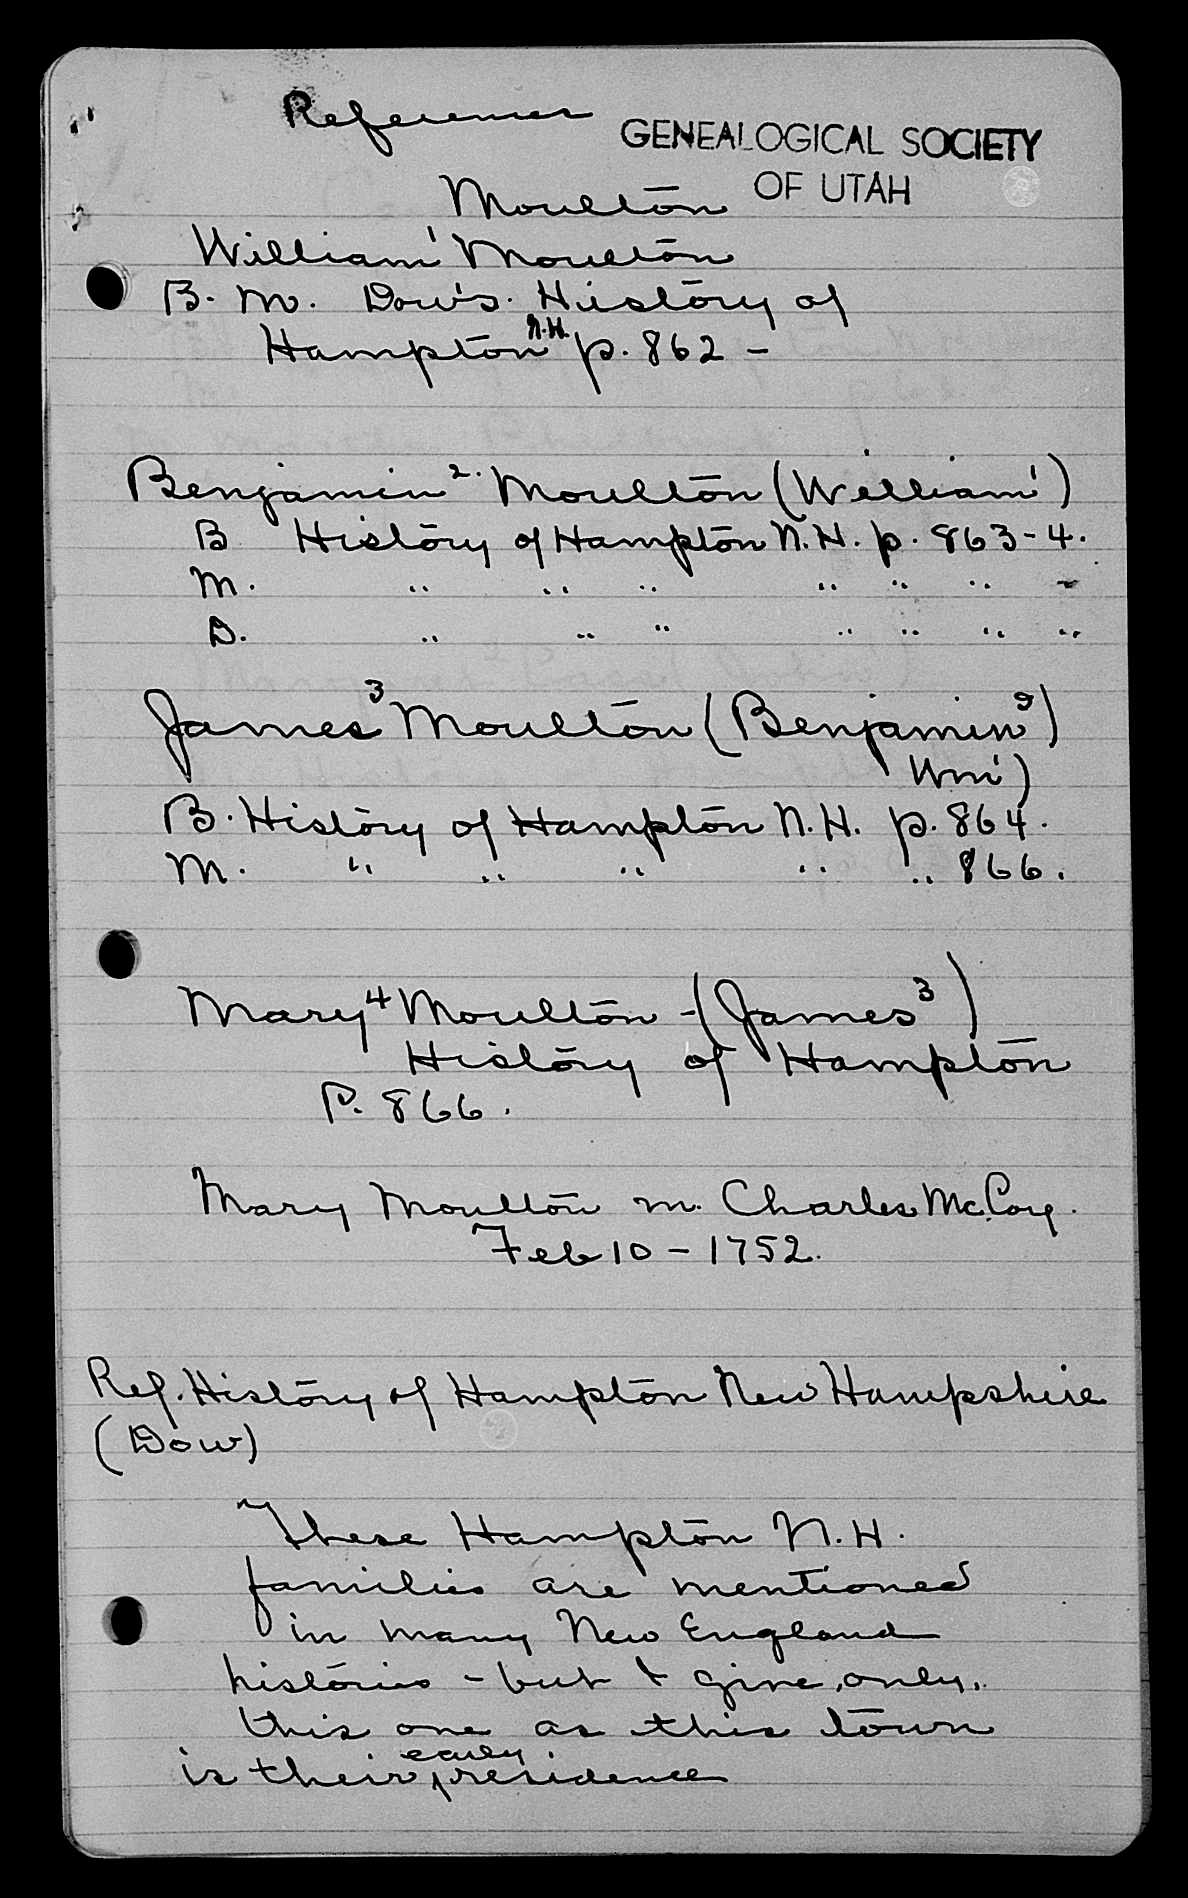 References
GENEALOGICAL SOCIETY
OF UTAH
Moulton
William¹ Moulton
B. M. Dow's. History of
Hampton N.H. p. 862 –
Benjamin². Moulton (William¹)
B History of Hampton N.H. p. 863-4.
M. " " " " " " "
D. " " " " " " "
James³ Moulton (Benjamin²)
Wm¹)
B. History of Hampton N.H. p. 864.
M. " " " " " 866.
Mary⁴ Moulton - (James³)
History of Hampton
P. 866.
Mary Moulton m. Charles McCoy.
Feb 10 – 1752.
Ref. History of Hampton New Hampshire
(Dow)
These Hampton N.H.
families are mentioned
in many New England
histories – but I give, only,
this one as this town
is their early residence